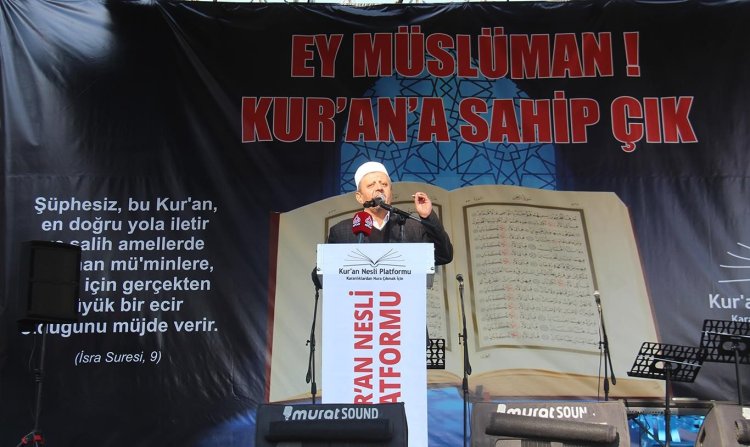 EY MÜSLÜMAN !
KUR'AN'A SAHİP ÇIK
Şüphesiz, bu Kur'an,
en doğru yola iletir
salih amellerde
mü'minlere,
için gerçekten
büyük bir ecir
olduğunu müjde verir.
(İsra Suresi, 9)
Kur'an Nesli Platformu
Karanlıklardan Nura Çıkmak İçin
KUR'AN NESLİ
PLATFORMU
Kur'
murat SOUND
murat SOUN